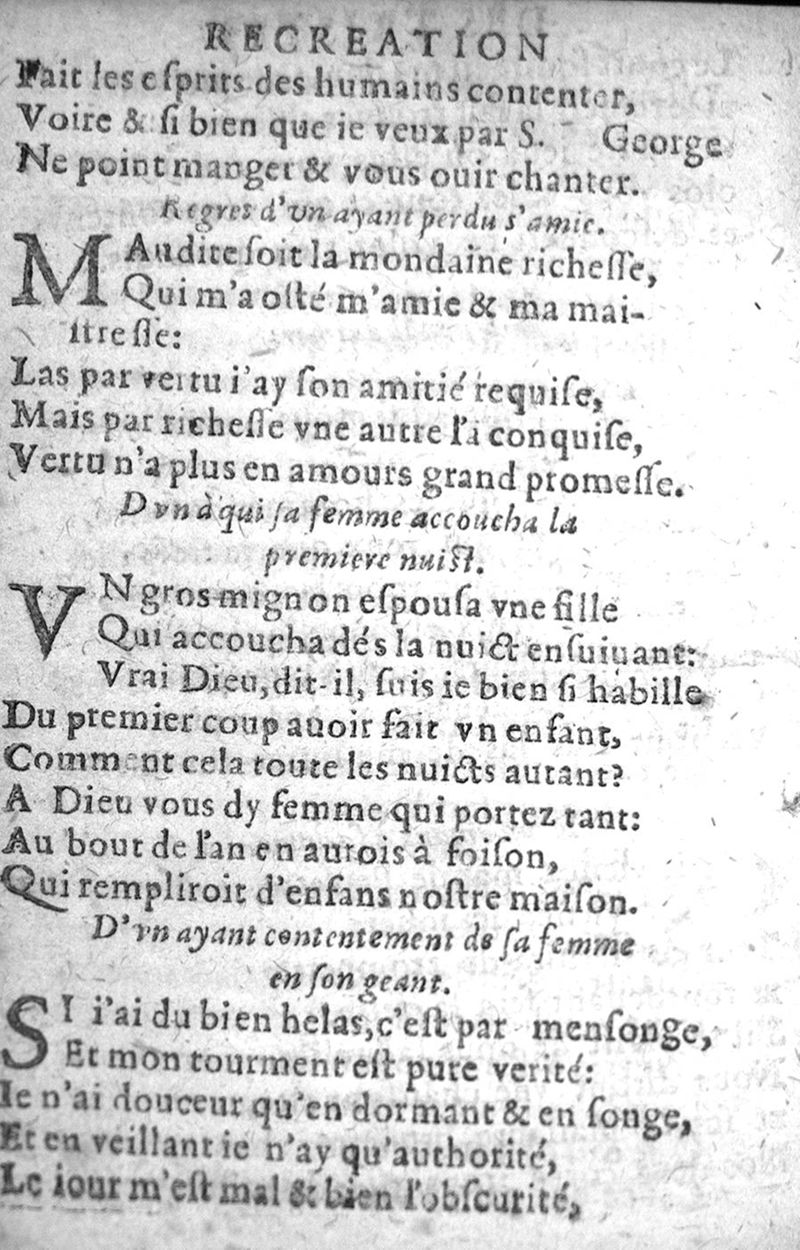 RECREATION
Fait les eſprits des humains contenter,
Voire & ſi bien que ie veux par S. George
Ne point manger & vous ouir chanter.
Regres d'vn ayant perdu s'amie.
MAudite ſoit la mondaine richeſſe,
Qui m'a oſté m'amie & ma mai-
ſtreſſe:
Las par vertu i'ay ſon amitié requiſe,
Mais par richeſſe vne autre l'a conquiſe,
Vertu n'a plus en amours grand promeſſe.
D'vn à qui ſa femme accoucha la
premiere nuiſt.
VN gros mignon eſpouſa vne fille
Qui accoucha dés la nuict enſuiuant:
Vrai Dieu, dit-il, ſuis ie bien ſi habille
Du premier coup auoir fait vn enfant,
Comment cela toute les nuicts autant?
A Dieu vous dy femme qui portez tant:
Au bout de l'an en aurois à foiſon,
Qui rempliroit d'enfans noſtre maiſon.
D'vn ayant contentement de ſa femme
en ſongeant.
SI i'ai du bien helas, c'eſt par menſonge,
Et mon tourment eſt pure verité:
Ie n'ai douceur qu'en dormant & en ſonge,
Et en veillant ie n'ay qu'authorité,
Le iour m'eſt mal & bien l'obſcurité,